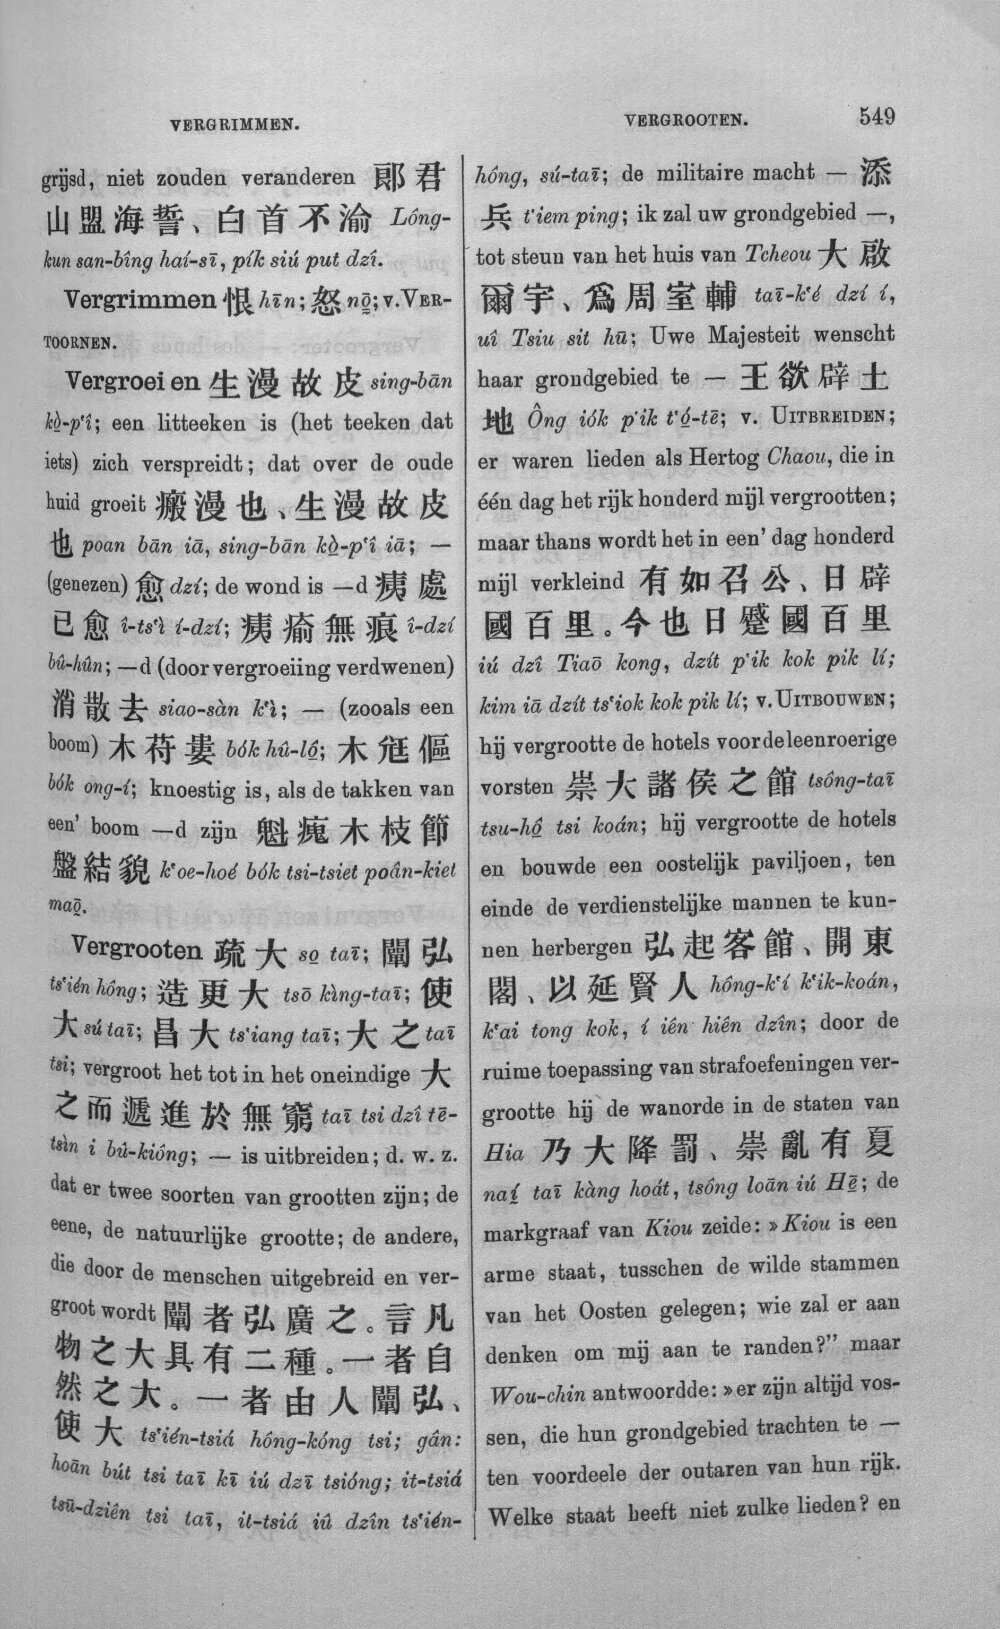 VERGRIMMEN.
VERGROOTEN. 549
grijsd, niet zouden veranderen 郎君
山盟海誓、白首不渝 Lông-
kun san-bîng haí-sī, pík siú put dzî.
Vergrimmen 恨 hīn; 怒 nō͘; v. VER-
TOORNEN.
Vergroeien 生漫故皮 sing-bān
kò͘-pʻî; een litteeken is (het teeken dat
iets) zich verspreidt; dat over de oude
huid groeit 瘢漫也、生漫故皮
也 poan bān iā, sing-bān kò͘-pʻî iā; —
(genezen) 愈 dzí; de wond is —d 痍處
已愈 î-tsʻì í-dzí; 痍瘉無痕 î-dzí
bû-hûn; —d (door vergroeiing verdwenen)
消散去 siao-sàn kʻì; — (zooals een
boom) 木苻婁 bók hû-lô͘; 木尫傴
bók ong-í; knoestig is, als de takken van
een' boom —d zijn 魁瘣木枝節
盤結貌 kʻoe-hoé bók tsi-tsiet poân-kiet
maō͘.
Vergrooten 疏大 so͘ taī; 闡弘
tsʻién hông; 造更大 tsō kìng-taī; 使
大 sú taī; 昌大 tsʻiang taī; 大之 taī
tsi; vergroot het tot in het oneindige 大
之而遞進於無窮 taī tsi dzî tē-
tsìn i bû-kiông; — is uitbreiden; d. w. z.
dat er twee soorten van grootten zijn; de
eene, de natuurlijke grootte; de andere,
die door de menschen uitgebreid en ver-
groot wordt 闡者弘廣之。言凡
物之大具有二種。一者自
然之大。一者由人闡弘、
使大 tsʻién-tsiá hông-kóng tsi; gân:
hoān bút tsi taī kī iú dzī tsióng; it-tsiá
tsū-dziên tsi taī, it-tsiá iû dzîn tsʻién-
hông, sú-taī; de militaire macht — 添
兵 tʻiem ping; ik zal uw grondgebied —,
tot steun van het huis van Tcheou 大啟
爾宇、爲周室輔 taī-kʻé dzí í,
uî Tsiu sit hū; Uwe Majesteit wenscht
haar grondgebied te — 王欲辟土
地 Ông iók pʻik tʻó͘-tē; v. UITBREIDEN;
er waren lieden als Hertog Chaou, die in
één dag het rijk honderd mijl vergrootten;
maar thans wordt het in een' dag honderd
mijl verkleind 有如召公、日辟
國百里。今也日蹙國百里
iú dzî Tiaō kong, dzít pʻik kok pik lí;
kim iā dzít tsʻiok kok pik lí; v. UITBOUWEN;
hij vergrootte de hotels voor de leenroerige
vorsten 崇大諸侯之館 tsông-taī
tsu-hô͘ tsi koán; hij vergrootte de hotels
en bouwde een oostelijk paviljoen, ten
einde de verdienstelijke mannen te kun-
nen herbergen 弘起客館、開東
閣、以延賢人 hông-kʻí kʻik-koán,
kʻai tong kok, í iên hiên dzîn; door de
ruime toepassing van strafoefeningen ver-
grootte hij de wanorde in de staten van
Hia 乃大降罰、崇亂有夏
naí͘ taī kàng hoát, tsông loān iú Hē͘; de
markgraaf van Kiou zeide: »Kiou is een
arme staat, tusschen de wilde stammen
van het Oosten gelegen; wie zal er aan
denken om mij aan te randen?” maar
Wou-chin antwoordde: »er zijn altijd vos-
sen, die hun grondgebied trachten te —
ten voordeele der outaren van hun rijk.
Welke staat heeft niet zulke lieden? en